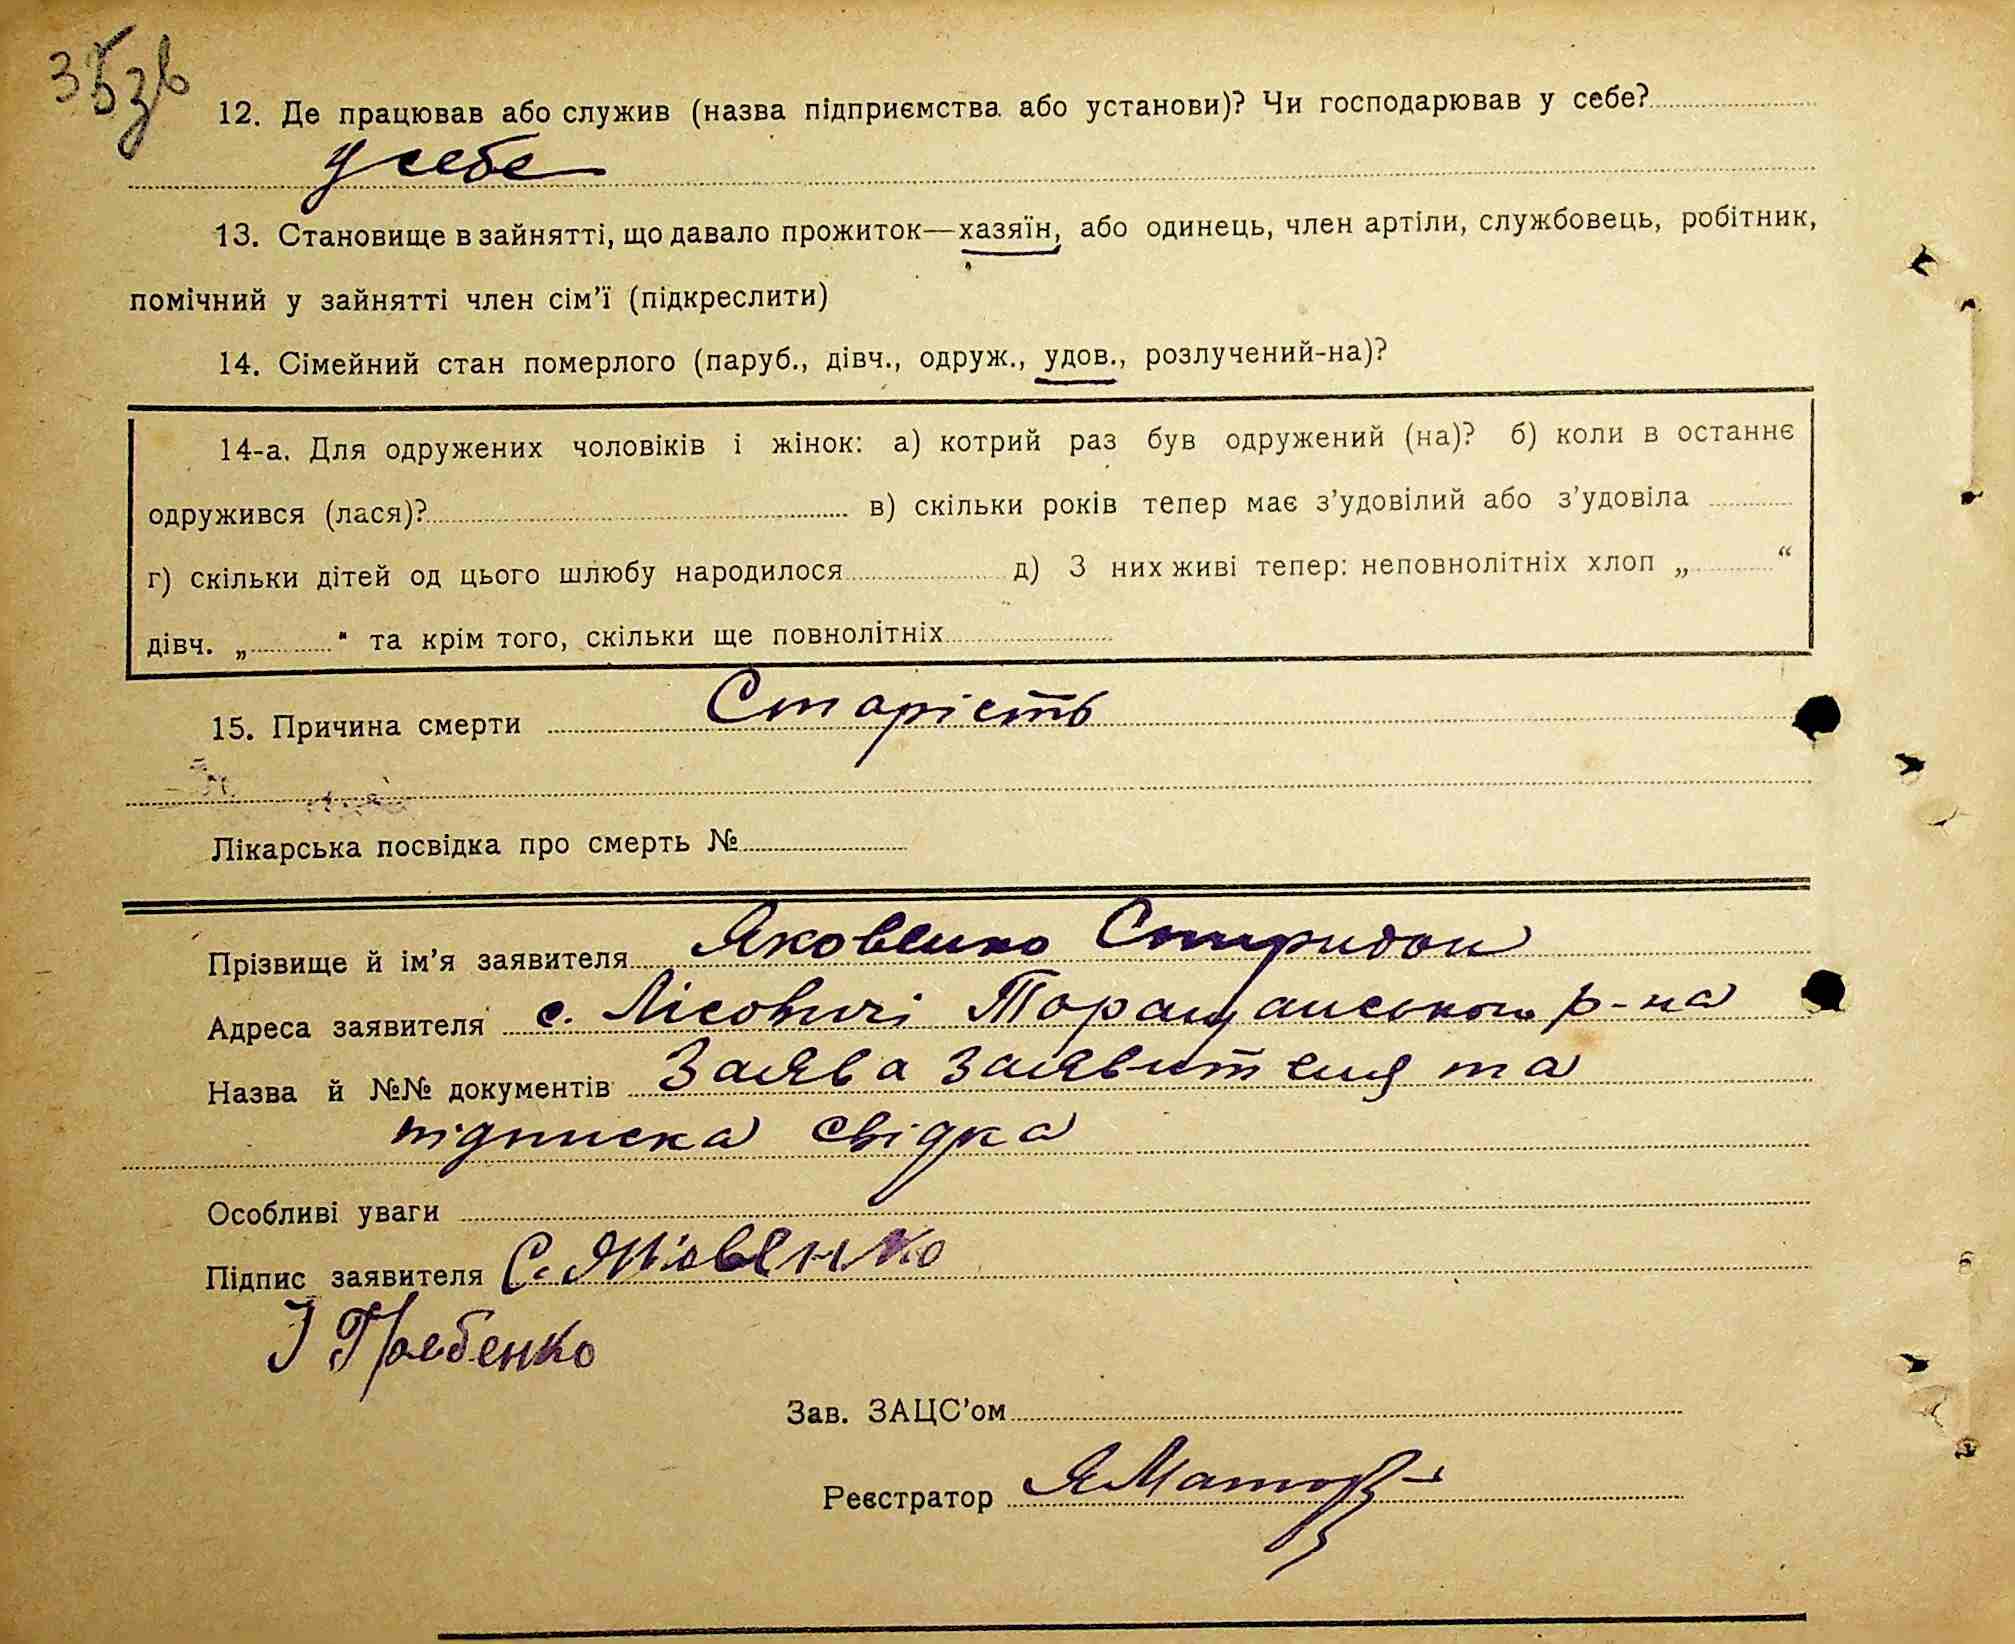 35зв
12. Де працював або служив (назва підприємства або установи)? Чи господарював у себе?
у себе
13. Становище в зайнятті, що давало прожиток—хазяїн, або одинець, член артіли, службовець, робітник,
помічний у зайнятті член сім'ї (підкреслити)
14. Сімейний стан померлого (паруб., дівч., одруж., удов., розлучений-на)?
14-а. Для одружених чоловіків і жінок: а) котрий раз був одружений (на)? б) коли в останнє
одружився (лася)? в) скільки років тепер має з'удовілий або з'удовіла
г) скільки дітей од цього шлюбу народилося д) З них живі тепер: неповнолітніх хлоп „ “
дівч. „ “ та крім того, скільки ще повнолітніх
15. Причина смерти Старість
Лікарська посвідка про смерть №
Прізвище й ім'я заявителя Яковенко Спиридон
Адреса заявителя с. Лісовичі Таращанського р-на
Назва й №№ документів Заява заявителя та
підписка свідка
Особливі уваги
Підпис заявителя С. Яковенко
І Гребенко
Зав. ЗАЦС'ом
Реєстратор